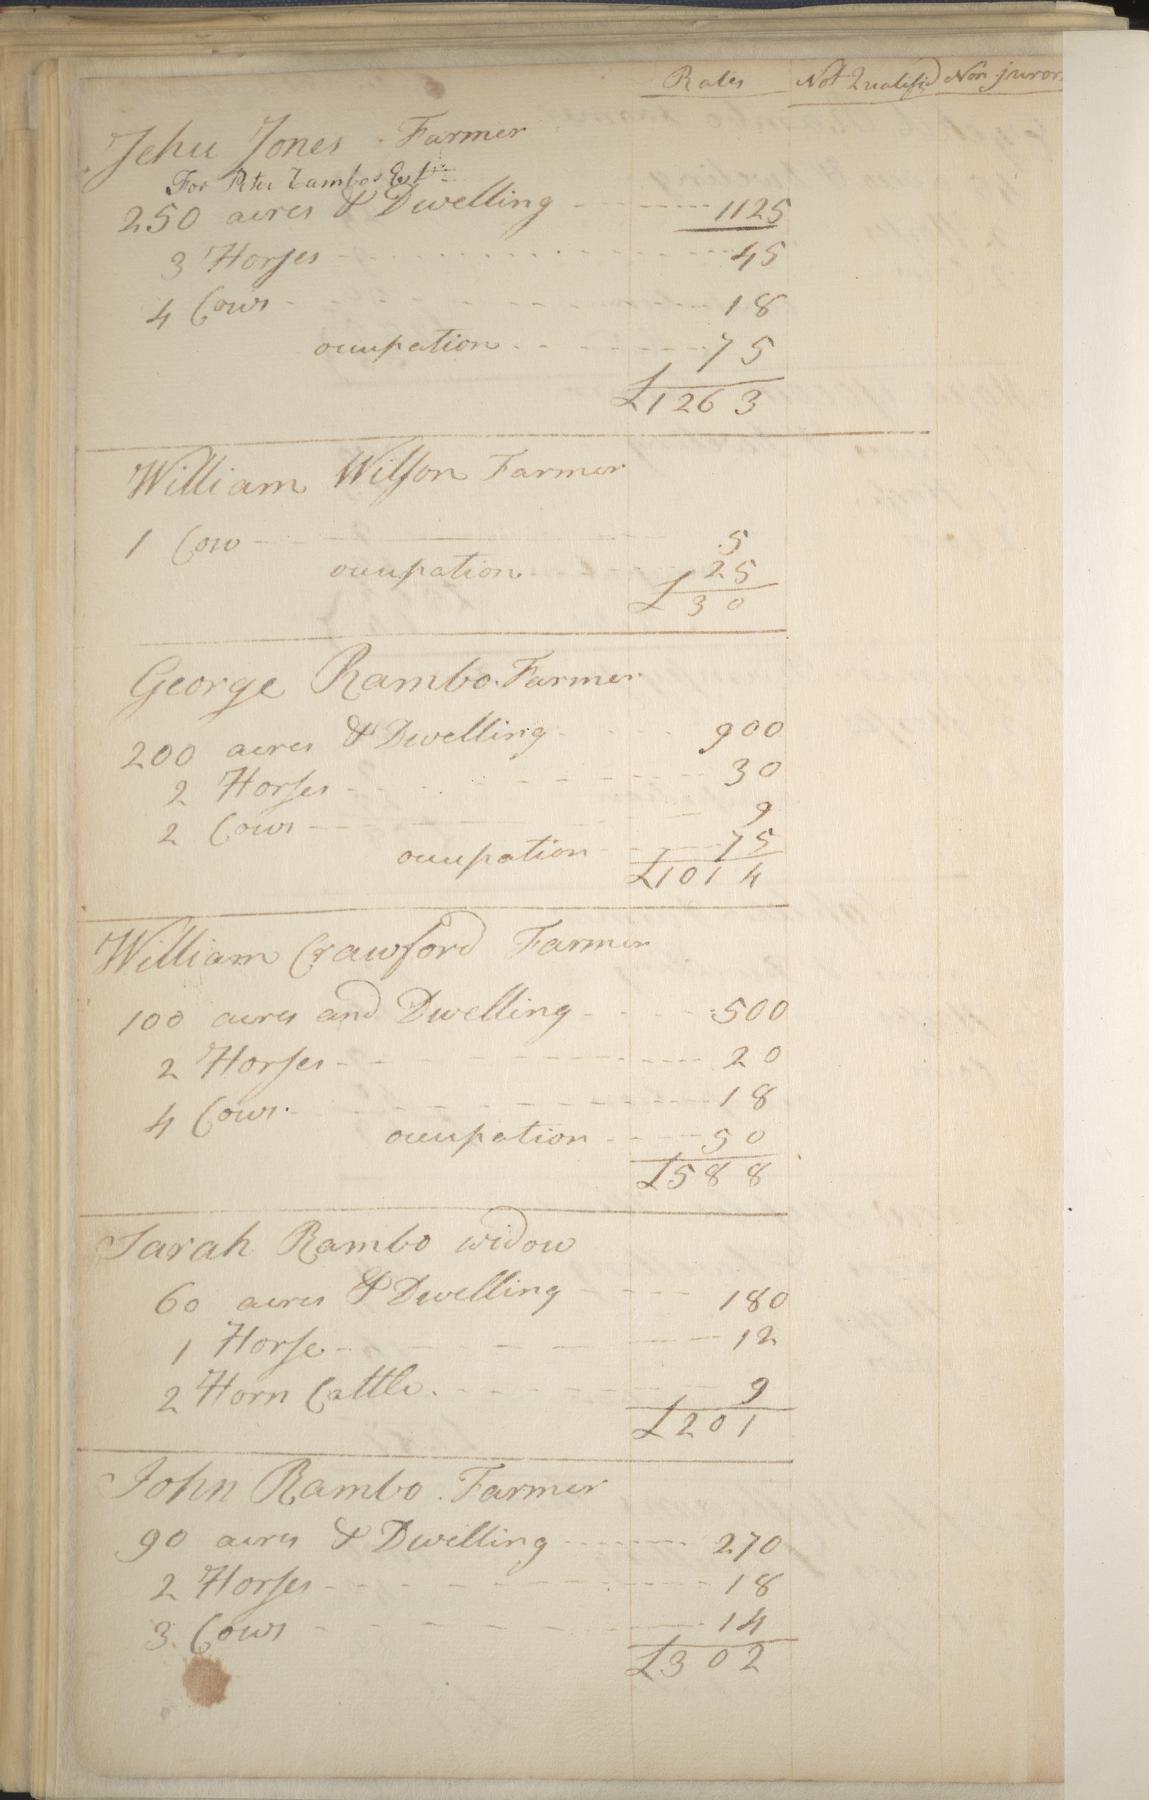 Rates Not Qualified Non juror
Jehu Jones Farmer
For Peter Rambos Est
250 acres & Dwelling 1125
3 Horses 45
4 Cows 18
ocupation 75
£1263
William Wilson Farmer
1 Cow 5
ocupation 25
£30
George Rambo Farmer
200 acres & Dwelling 900
2 Horses 30
2 Cows 9
ocupation 75
£1014
William Crawford Farmer
100 acres and Dwelling 500
2 Horses 20
4 Cows 18
ocupation 50
£588
Sarah Rambo widow
60 acres & Dwelling 180
1 Horse 12
2 Horn Cattle 9
£201
John Rambo Farmer
90 acres & Dwelling 270
2 Horses 18
3 Cows 14
£302